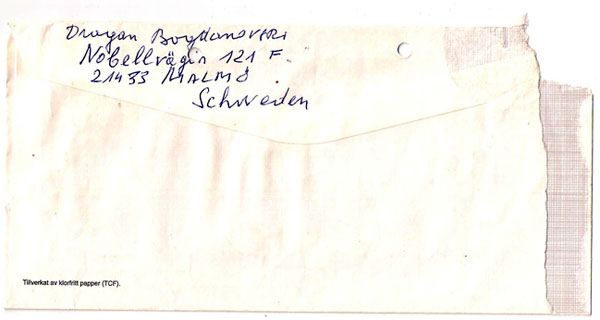 Dragan Bogdanovski
Nobellvägin 121 F.
21433 MALMÖ
Schweden
Tillverkat av klorfritt papper (TCF).